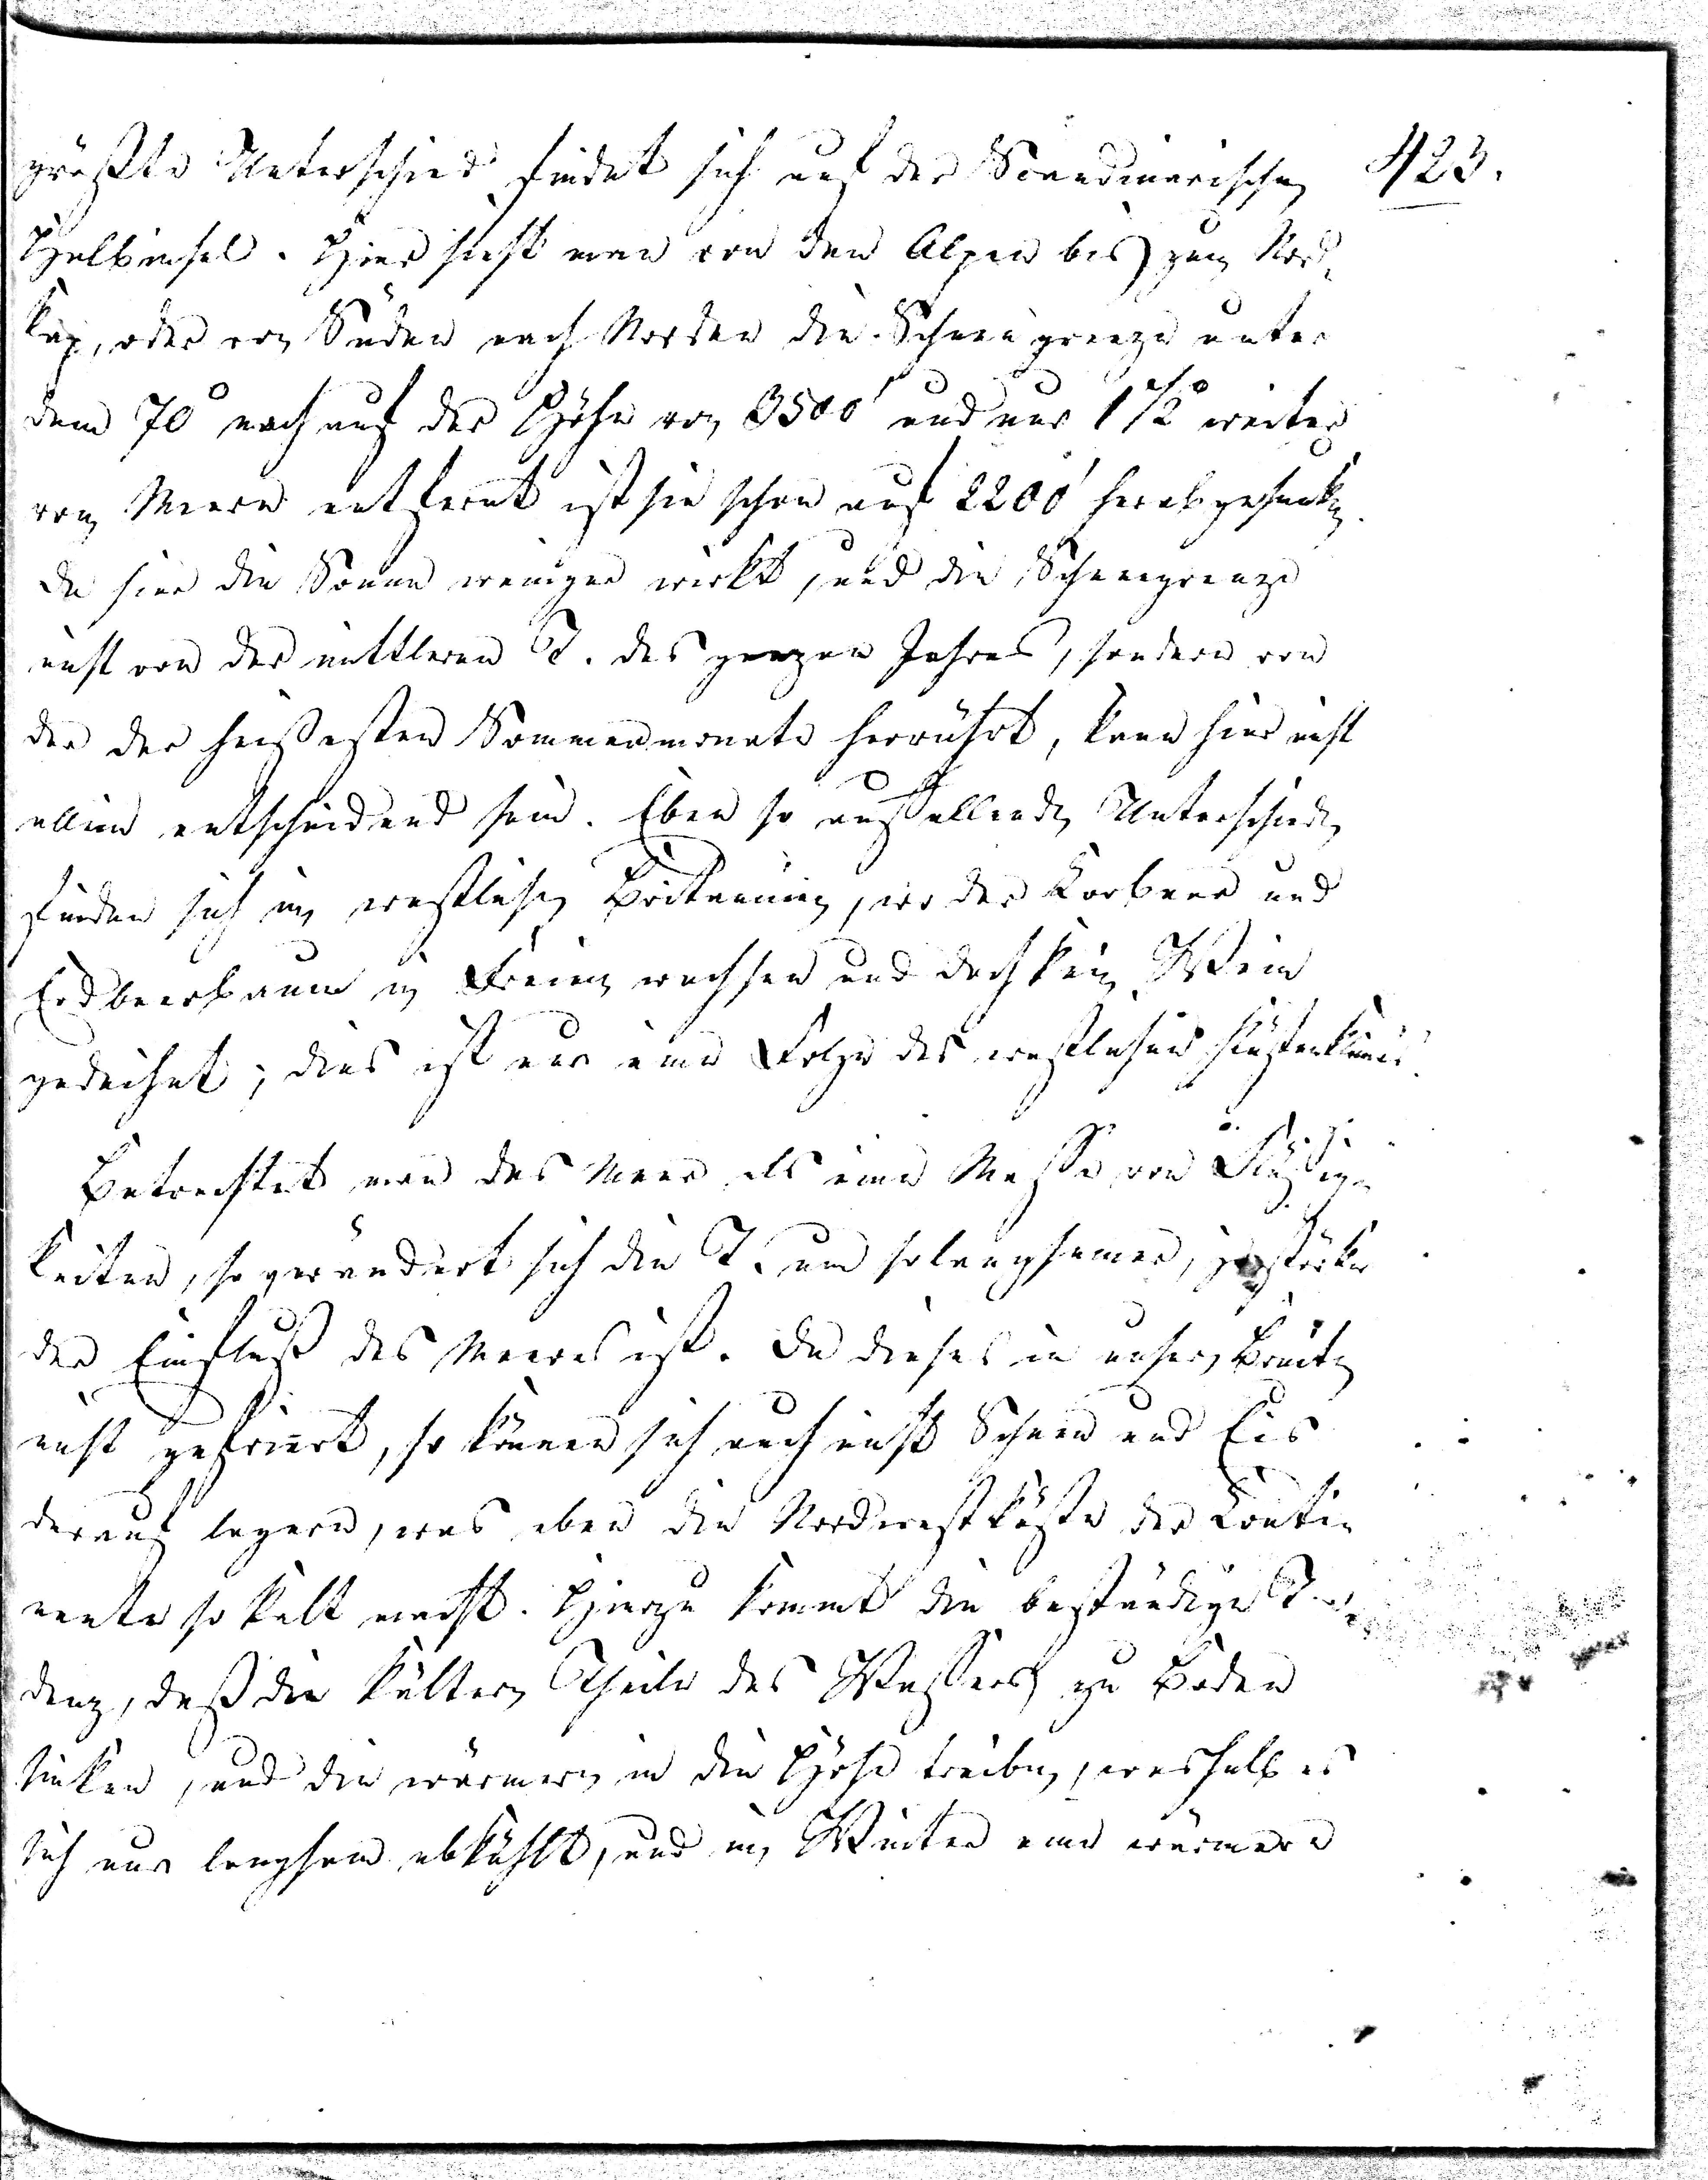 423.
größte Unterschied findet sich auf der Scandinavischen
Halbinsel. Hier sieht man von den Alpen bis zum Nord-
kap, oder von Süden nach Norden die Schneegrenze unter
dem 70° noch auf der Höhe von 3500' und nur 1 1/2° weiter
vom Meere entfernt ist sie schon auf 2200' herabgesunken.
Da hier die Sonne weniger wirkt, und die Schneegrenze
nicht von der mittleren T. des ganzen Jahres, sondern von
der der heißesten Sommermonate herrührt, kann hier nicht
allein entscheidend sein. Eben so auffallende Unterschiede
finden sich im westlichen Britannien, wo der Lorbeer und
Erdbeerbaum im Freien wachsen und doch kein Wein
gedeihet; dies ist nur eine Folge des westlichen Küstenklimas.
Betrachtet man das Meer als eine Masse von Flüssig-
keiten, so verändert sich die T. um so langsamer, je stärker
der Einfluß des Meeres ist. Da dieses in unsern Breiten
nicht gefriert, so können sich auch nicht Schnee und Eis
darauf lagern, was eben die Nordwestküste der Conti-
nente so kalt macht. Hierzu kommt die beständige Ten-
denz, daß die kältern Theile des Wassers zu Boden
sinken, und die wärmern in die Höhe treiben, weshalb es
sich nur langsam abkühlt, und im Winter eine wärmere